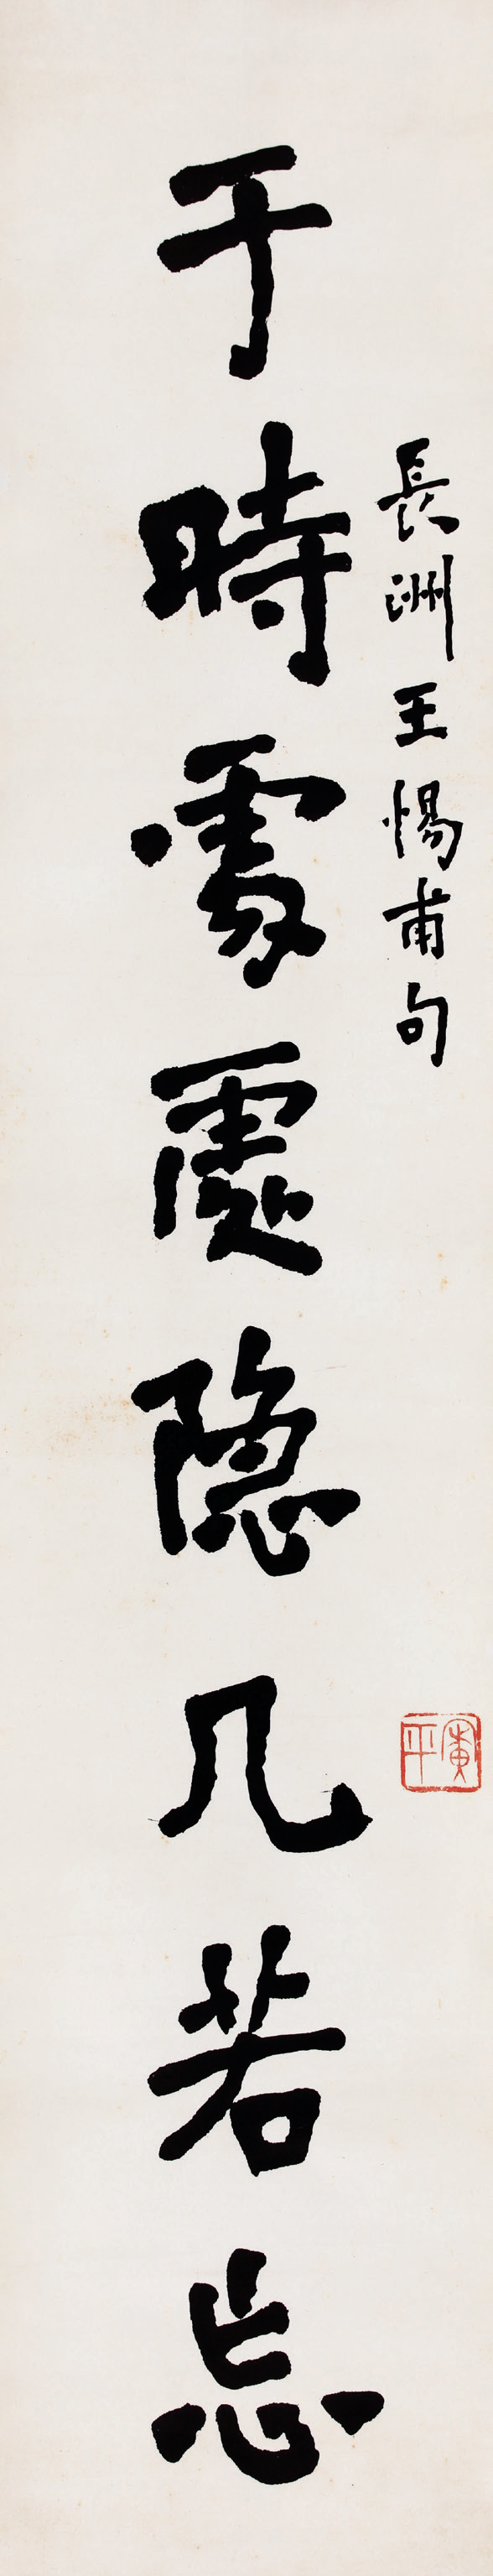 長洲王惕甫句
于時處處隱几若忘